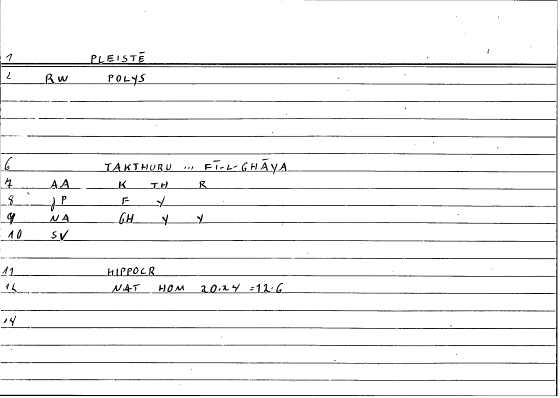 1 PLEISTĒ
2 RW POLYS
6 TAKTHURU ... FĪ-L-GHĀYA
7 AA K TH R
8 JP F Y
9 NA GH Y Y
10 SV
11 HIPPOCR
12 NAT HOM 20.24 =12.6
14